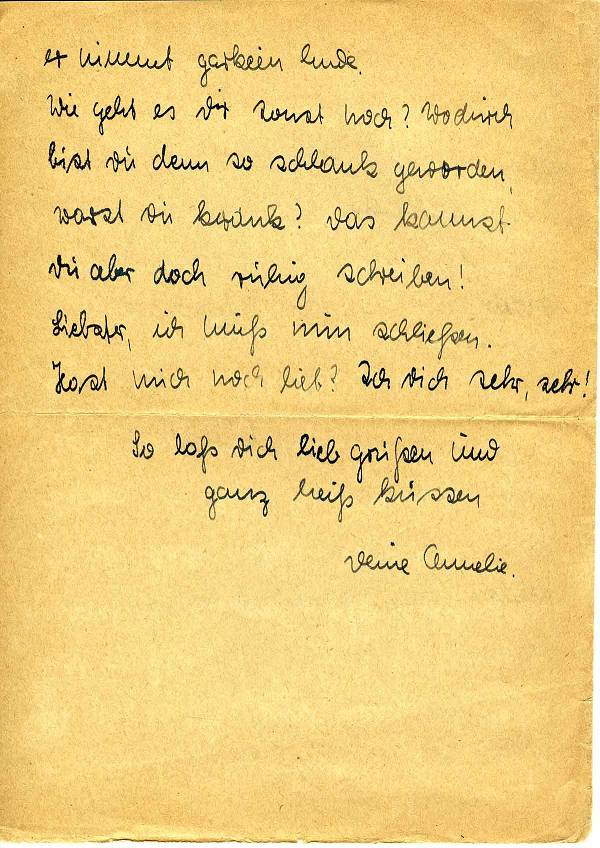 er nimmt garkein Ende.
Wie geht es dir sonst noch? Wodurch
bist du denn so schlank geworden,
warst du krank? Das kannst
du aber doch ruhig schreiben!
Liebster, ich muß nun schließen.
Hast mich noch lieb? Ich dich sehr, sehr!
So laß dich lieb grüßen und
ganz heiß küssen
Deine Annelie.